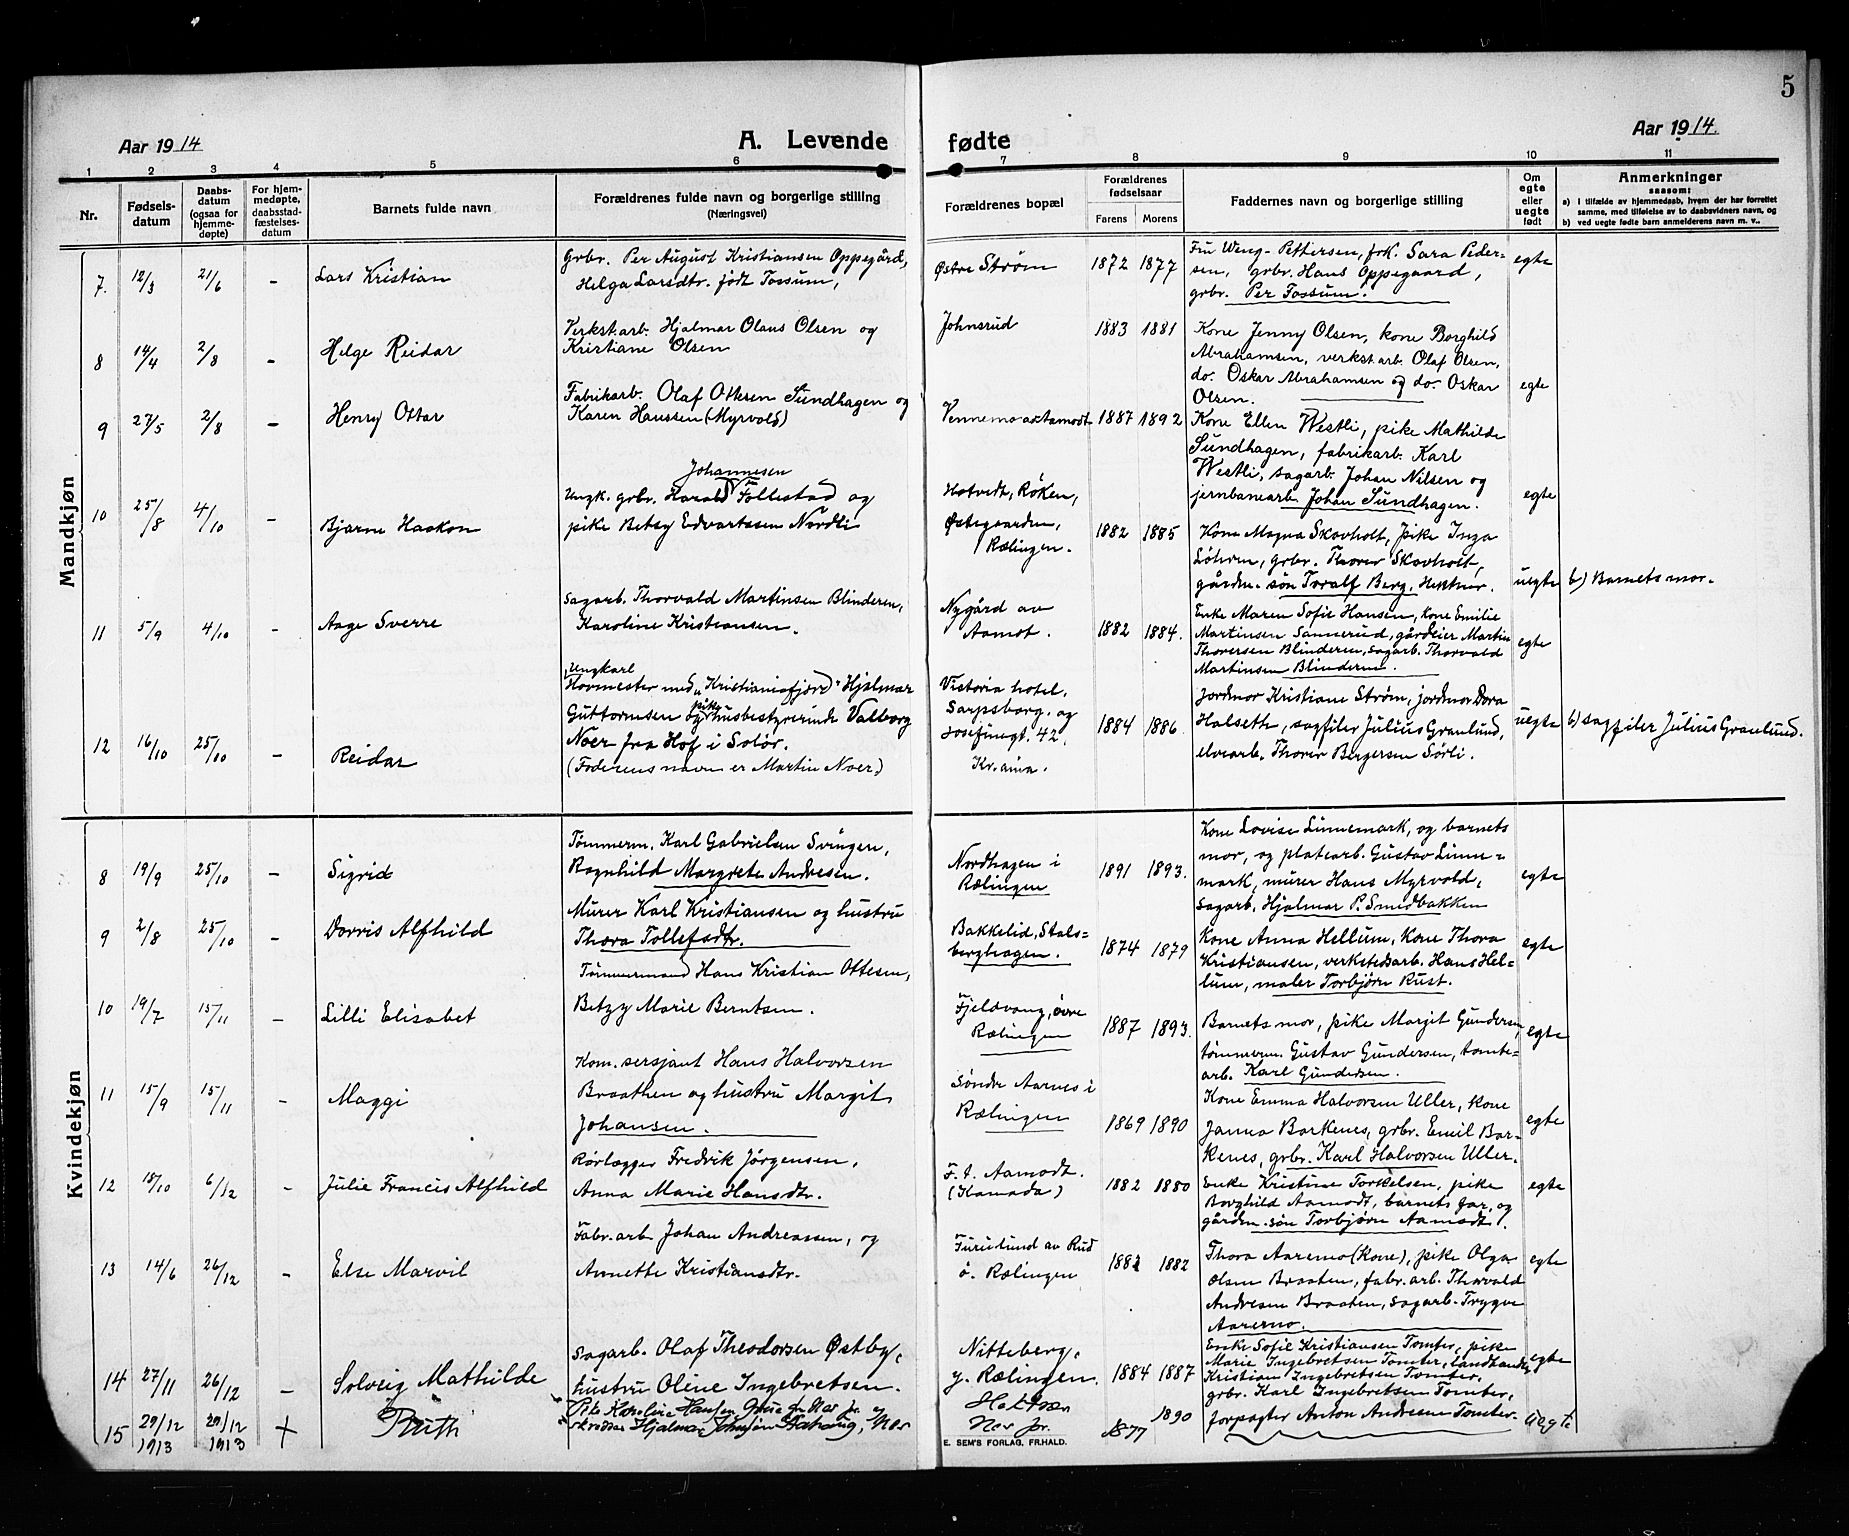 5
Aar 1914
A. Levende fødte
Aar 1914.
1 2 3 4 5 6 7 8 9 10 11
Nr.
Fødsels-
datum
Daabs-
datum
(ogsaa for
hjemme-
døpte)
For hjem-
medøpte,
daabsstad-
fæstelses-
datum
Barnets fulde navn
Forældrenes fulde navn og borgerlige stilling
(Næringsvei)
Forældrenes bopæl
Forældrenes
fødselsaar
Farens Morens
Faddernes navn og borgerlige stilling
Om
egte
eller
uegte
født
Anmerkninger
saasom:
a) I tilfælde av hjemmedaab, hvem der har forrettet
samme, med tilføielse av to daabsvidners navn, og
b) ved uegte født barn anmelderens navn m. v..
Mandkjøn
7. 12/3 21/6 - Lars Kristian
Grbr. Per August Kristiansen Oppegård,
Helga Larsdtr. født Tossum,
Østre Strøm
1872 1877
Fru Weng-Pettersen, frk. Sara Peder-
sen, grbr. Hans Oppegaard,
grbr. Per Tossum.
egte
8 14/4 2/8 - Helge Reidar
Verkst.arb. Hjalmar Olaus Olsen og
Kristiane Olsen
Johnsrud
1883 1881
Kone Jenny Olsen, kone Borghild
Abrahamsen, verkst.arb. Olaf Olsen,
do. Oskar Abrahamsen og do. Oskar
Olsen.
egte
9 27/5 2/8 - Henry Ottar
Fabrikarb. Olaf Ottesen Sundhagen og
Karen Hanssen (Myrvold)
Vennemoaatamodt
1887 1892
Kone Ellen Westli, pike Mathilde
Sundhagen, fabrikarb. Karl
Westli, sagarb. Johan Nilsen og
jernbanearb. Johan Sundhagen.
egte
10 25/8 4/10 - Bjarne Haakon
Johannesen
Ungk. grbr. Harald Follestad og
pike Betsy Edvartsen Nordli
Hotvedt, Røken,
Østegaarden,
Rælingen.
1882 1885
Kone Magna Skovholt, pike Inga
Løhren, grbr. Thorer Skovholt,
gårdm. søn Toralf Berg,
uegte b) Barnets mor.
11 5/9 4/10 - Aage Sverre
Sagarb. Thorvald Martinsen Blinderen,
Karoline Kristiansen.
Nygård av
Aamot.
1882 1884.
Enke Maren Sofie Hansen, kone Emilie
Martinsen Sannerud, gårdeier Martin
Thoresen Blinderen, sagarb. Thorvald
Martinsen Blinderen.
egte
12 16/10 25/10 - Reidar
Ungkarl
Hovmester med "Kristianiafjord" Hjalmar
Guttormsen og pike husbestyrerinde Valborg
Noer fra Hof i Solør.
(Faderens navn er Martin Noer)
Victoria hotel,
Sarpsborg, og
Josefinegt. 42,
Kr.ania.
1884 1886
Jordmor Kristiane Strøm, jordmor Dora
Halseth, sagfiler Julius Granlund,
elvearb. Thorer Bergersen Sørli.
uegte b) sagfiler Julius Granlund.
Kvindekjøn
8 19/9 25/10 - Sigrid
Tømmerm. Karl Gabrielsen Svingen,
Ragnhild Margrete Andresen.
Nordhagen i
Rælingen
1891 1893.
Kone Lovise Linnemark, og barnets
mor, og platearb. Gustav Linne-
mark, murer Hans Myrvold,
sagarb. Hjalmar P. Smedbakken
egte
9 2/8 25/10 - Dorris Alfhild
Murer Karl Kristiansen og hustru
Thora Tollefsdtr.
Bakkelid, Stals-
berghagen.
1874 1879
Kone Anna Hellum, Kone Thora
Kristiansen, verkstedsarb. Hans Hel-
lum, maler Torbjørn Rust.
egte
10 19/7 15/11 - Lilli Elisabet
Tømmermand Hans Kristian Ottesen,
Betzy Marie Berntsen.
Fjeldvang, øvre
Rælingen
1887 1893.
Barnets mor, pike Margit Gundersen,
tømmerm. Gustav Gundersen, tomte-
arb. Karl Gundersen.
egte
11 15/9 15/11 - Maggi
Kom. sersjant Hans Halvorsen
Braathen og hustru Margit
Johansen.
Søndre Aarnes i
Rælingen
1869 1890
Kone Emma Halvorsen Uller, kone
Janna Barkenes, grbr. Emil Bar-
kenes, grbr. Karl Halvorsen Uller.
egte
12 15/10 6/12 - Julie Francis Alfhild
Rørlægger Fredrik Jørgensen,
Anna Marie Hansdtr.
F. t. Aamodt.
(Kamada)
1882 1880
Enke Kristine Torkelsen, pike
Borghild Aamodt, barnets far, og
gårdm. søn Torbjørn Aamodt.
egte
13 14/6 26/12 - Else Marvil
Fabr.arb Johan Andreassen, og
Annette Kristiansdtr.
Furulund av Rud
ø. Rælingen
1882 1882
Thora Aaremo (kone), pike Olga
Olsen Braaten, fabr. arb. Thorvald
Andresen Braaten, sagarb. Trygve
Aaremo.
egte
14 27/11 26/12 - Solveig Mathilde
Sagarb. Olaf Theodorsen Østby,
hustru Oline Ingebretsen.
Nitteberg,
y. Rælingen.
1884 1887
Enke Sofie Kristiansen Tomter, pike
Marie Ingebretsen Tomter, landhandler
Kristian Ingebretsen Tomter,
grbr. Karl Ingebretsen Tomter,
forpagter Anton Andresen Tomter.
egte
15 29/12 1913 29/12 1913 + Ruth
Pike Karoline Hansen
Hjalmar
1877 1890
uegte
E. SEM'S FORLAG, FR.HALD.